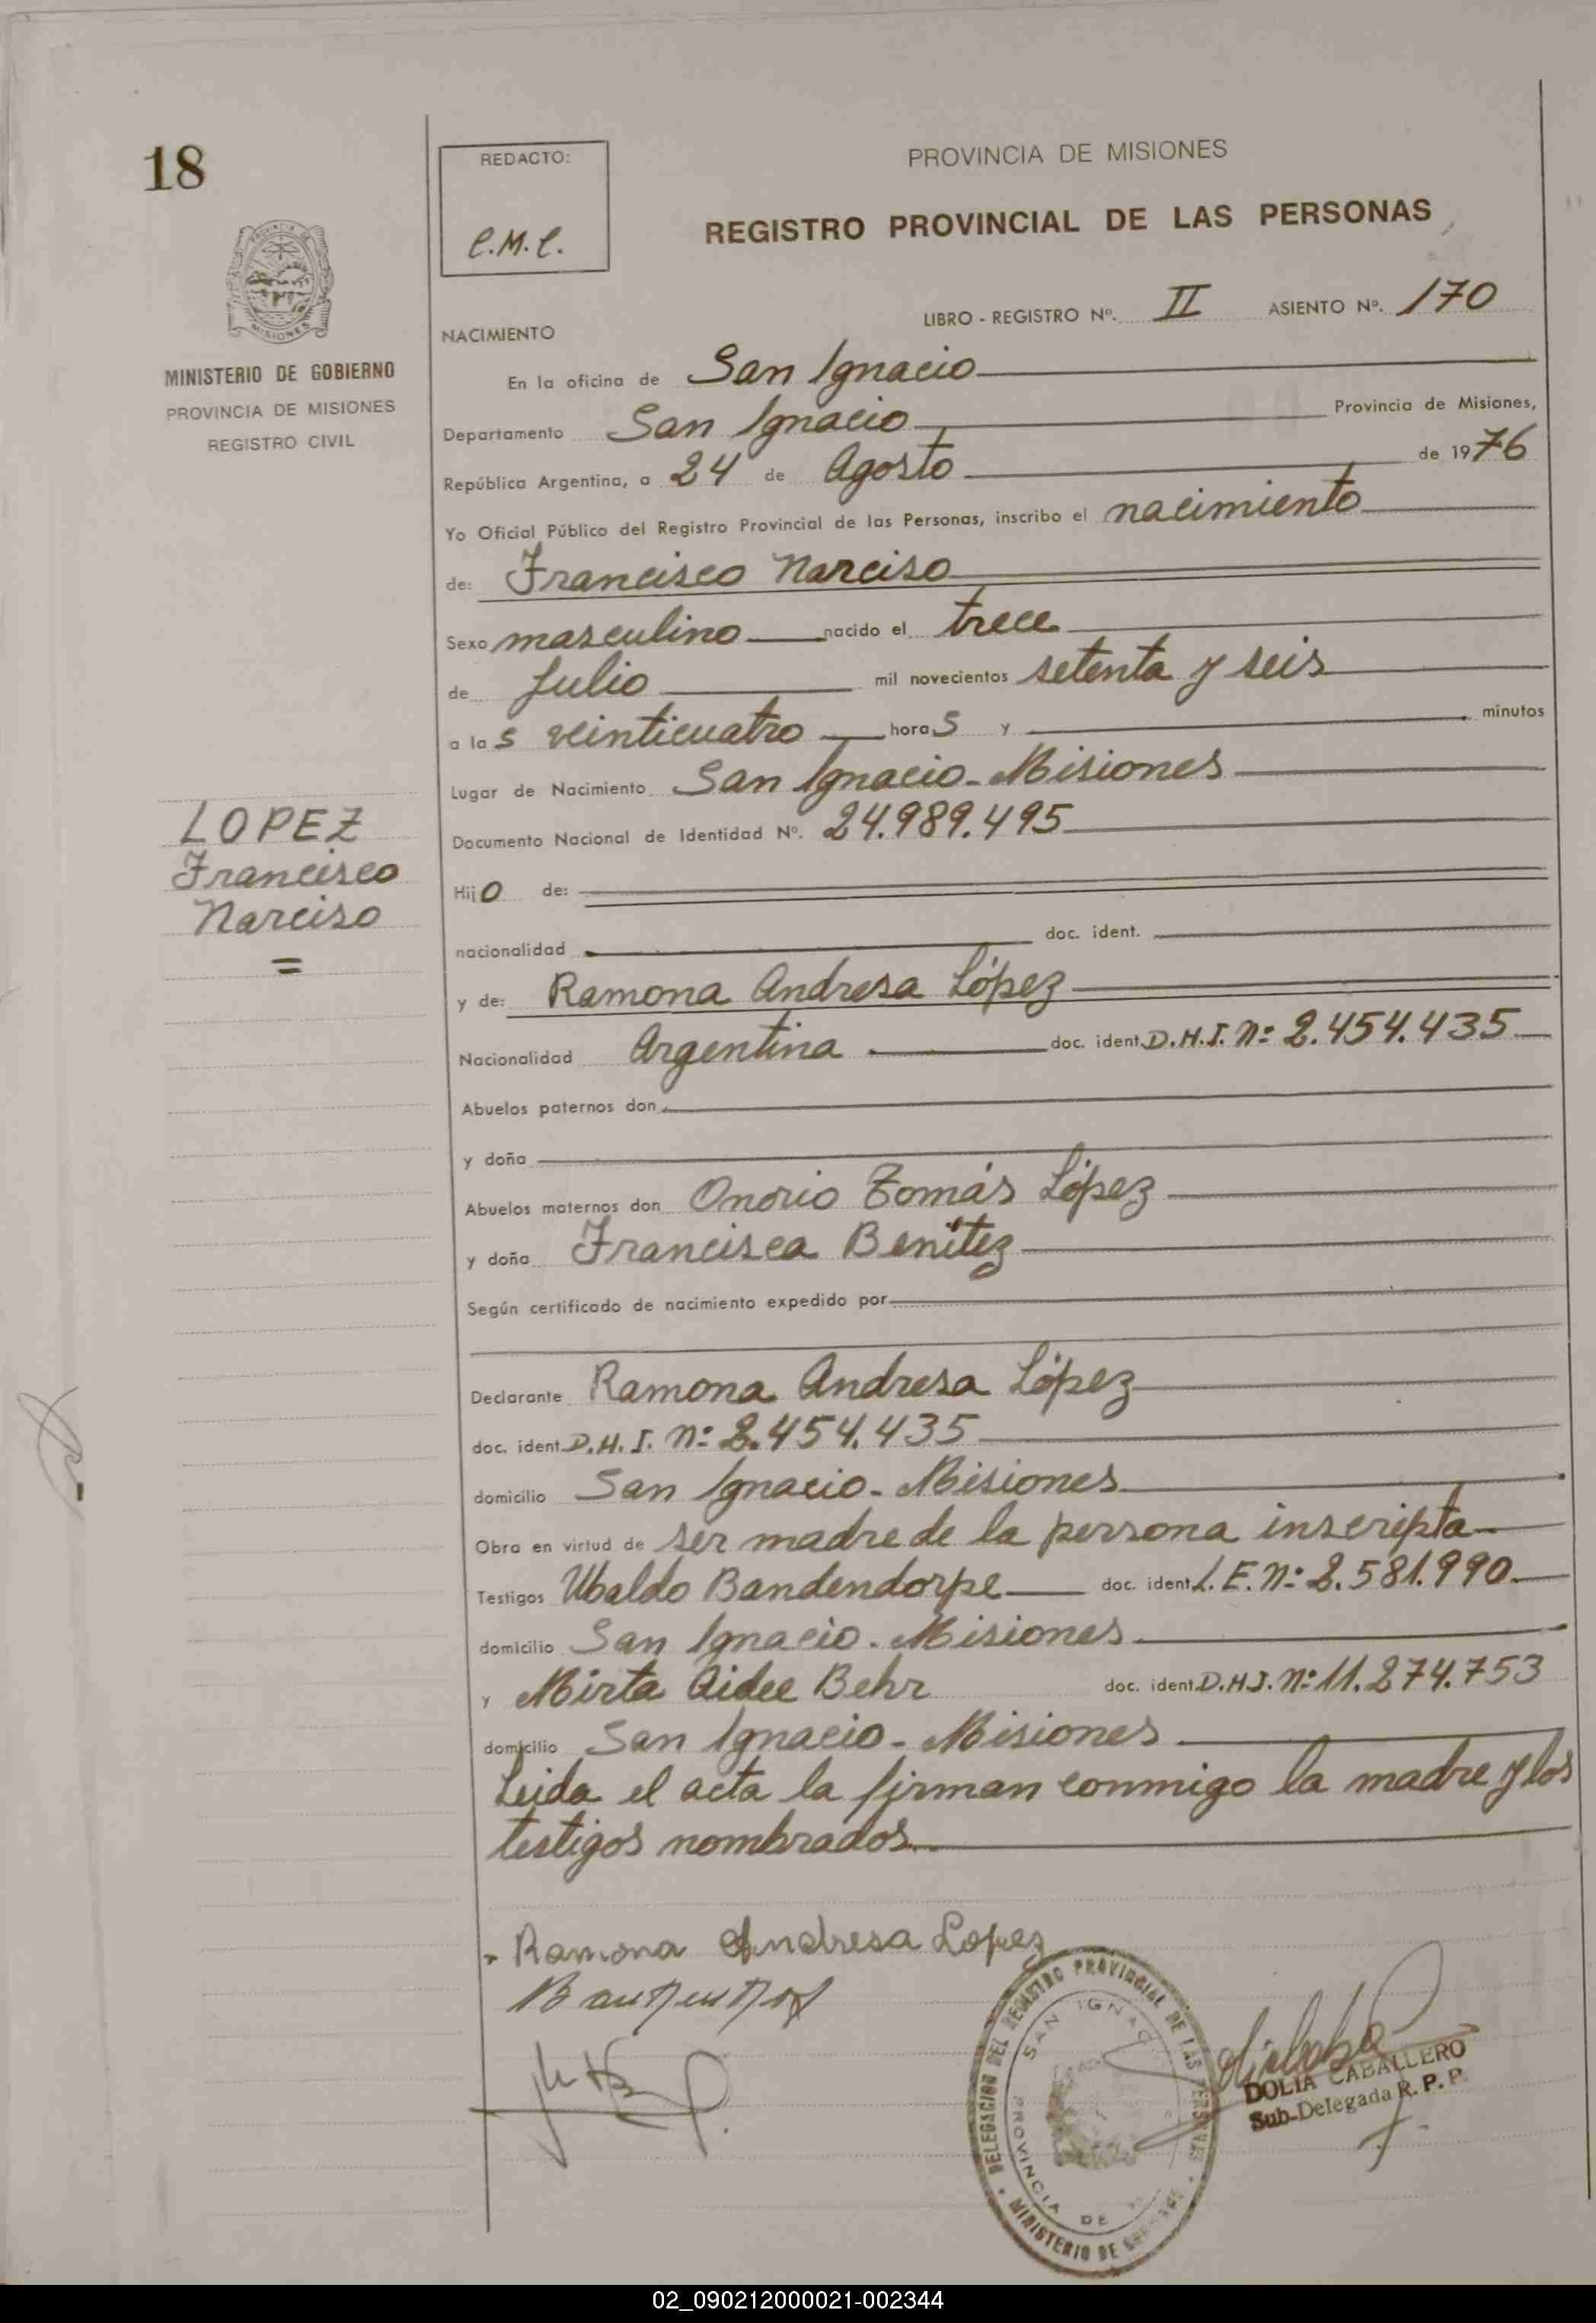 18
REDACTO:
C.M.C.
PROVINCIA DE MISIONES
REGISTRO PROVINCIAL DE LAS PERSONAS
PROVINCIA DE
MISIONES
MINISTERIO DE GOBIERNO
PROVINCIA DE MISIONES
REGISTRO CIVIL
LIBRO - REGISTRO Nº. II ASIENTO Nº. 170
NACIMIENTO
En la oficina de San Ignacio
Departamento San Ignacio Provincia de Misiones,
República Argentina, a 24 de Agosto de 1976
Yo Oficial Público del Registro Provincial de las Personas, inscribo el nacimiento
de: Francisco Narciso
Sexo masculino nacido el trece
de Julio mil novecientos setenta y seis
a las veinticuatro horas y minutos
Lugar de Nacimiento San Ignacio - Misiones
Documento Nacional de Identidad Nº. 24.989.495
LOPEZ
Francisco
Narciso
=
Hijo de:
nacionalidad doc. ident.
y de: Ramona Andresa López
Nacionalidad Argentina doc. ident. D.N.I. Nº 2.454.435
Abuelos paternos don
y doña
Abuelos maternos don Onorio Tomás López
y doña Francisca Benítez
Según certificado de nacimiento expedido por
Declarante Ramona Andresa López
doc. ident. D.N.I. Nº 2.454.435
domicilio San Ignacio - Misiones
Obra en virtud de ser madre de la persona inscripta
Testigos Ubaldo Bandendorpe doc. ident. L.E. Nº 2.581.990
domicilio San Ignacio - Misiones
y Mirta Aidee Behr doc. ident. D.N.I. Nº 11.274.753
domicilio San Ignacio - Misiones
Leida el acta la firman conmigo la madre y los
testigos nombrados
Ramona Andresa Lopez
DELEGACION DEL REGISTRO PROVINCIAL DE LAS PERSONAS
SAN IGNAC
PROVINCIA DE
MINISTERIO DE
DOLIA CABALLERO
Sub-Delegada R. P. P.
02_090212000021-002344